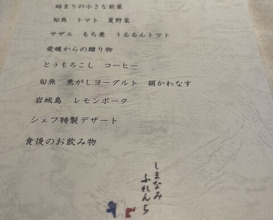 始まりの小さな前菜
旬魚 トマト 夏野菜
サザエ もち麦 うるるんトマト
愛媛からの贈り物
とうもろこし コーヒー
旬魚 焦がしヨーグルト 絹かわなす
岩城島 レモンポーク
シェフ特製デザート
食後のお飲み物
しまなみ
ふれんち